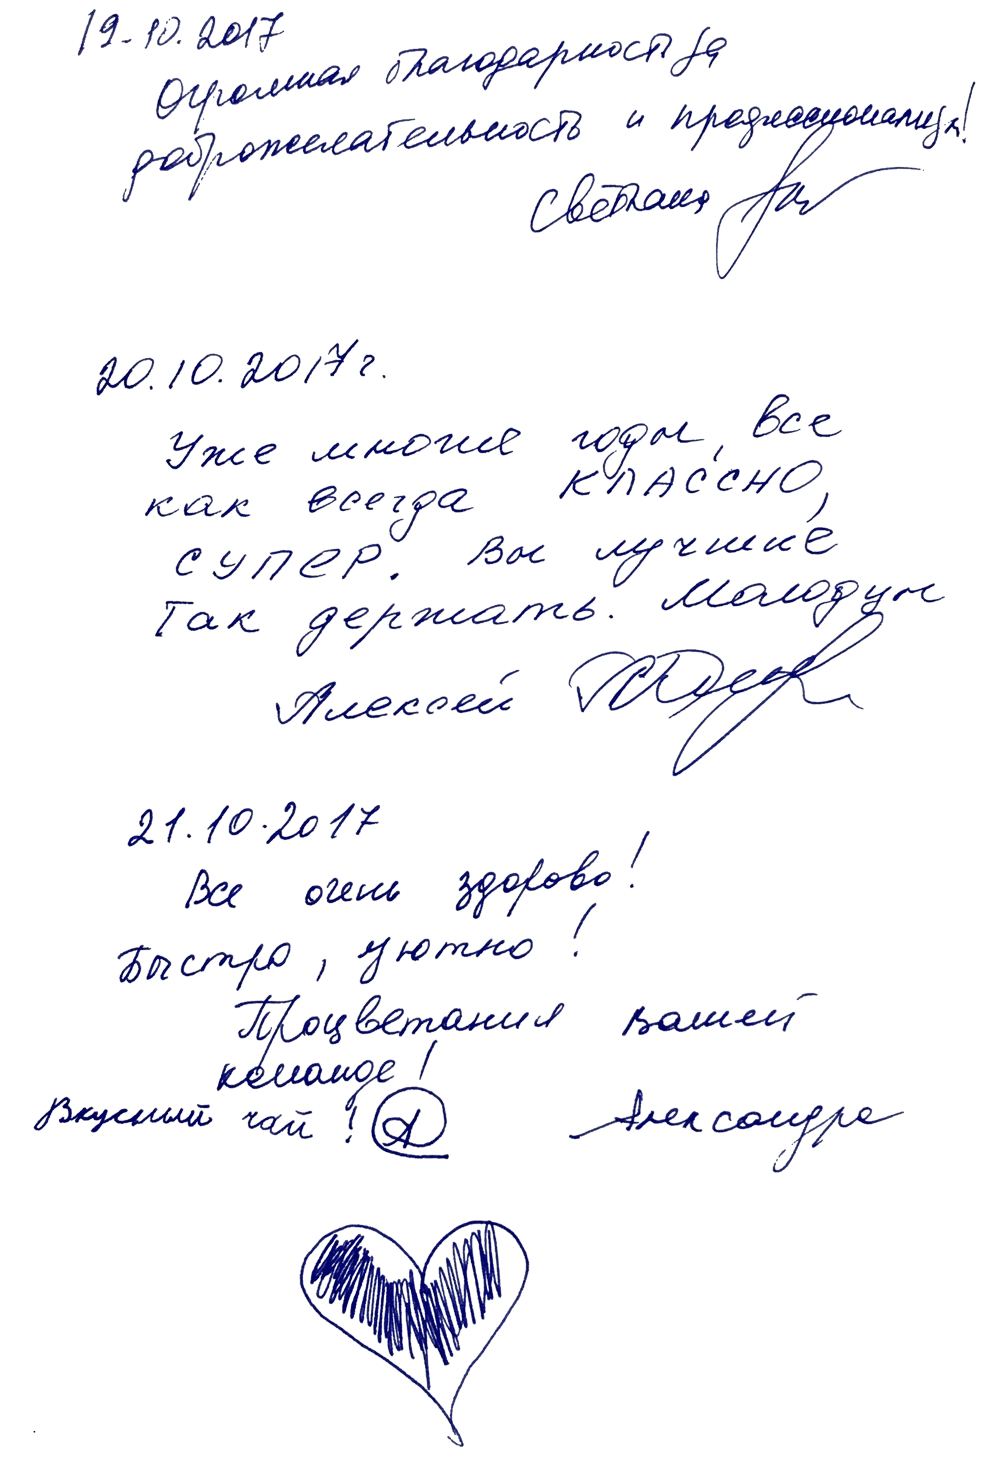 19.10.2017
Огромная благодарность за
доброжелательность и профессионализм!
Светлана
20.10.2017 г.
Уже многие годы, все
как всегда КЛАССНО,
СУПЕР. Вы лучшие
Так держать. Молодцы
Алексей
21.10.2017
Все очень здорово!
Быстро, уютно!
Процветания вашей
команде!
Вкусный чай! А
Александра